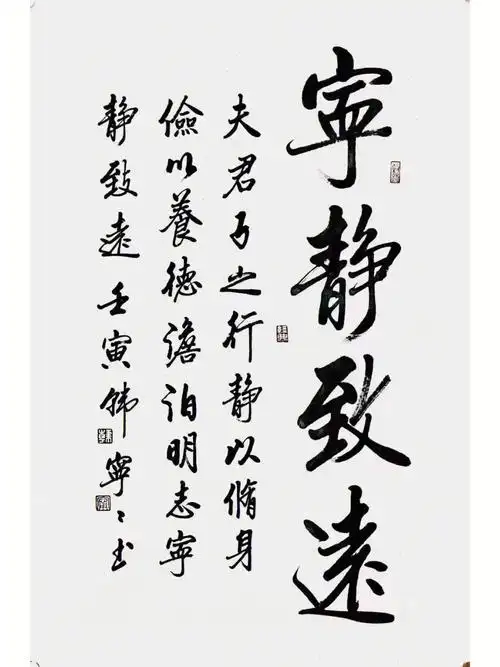 寧静致遠
夫君子之行静以脩身
儉以養德澹泊明志寧
静致遠壬寅韩寧〻书